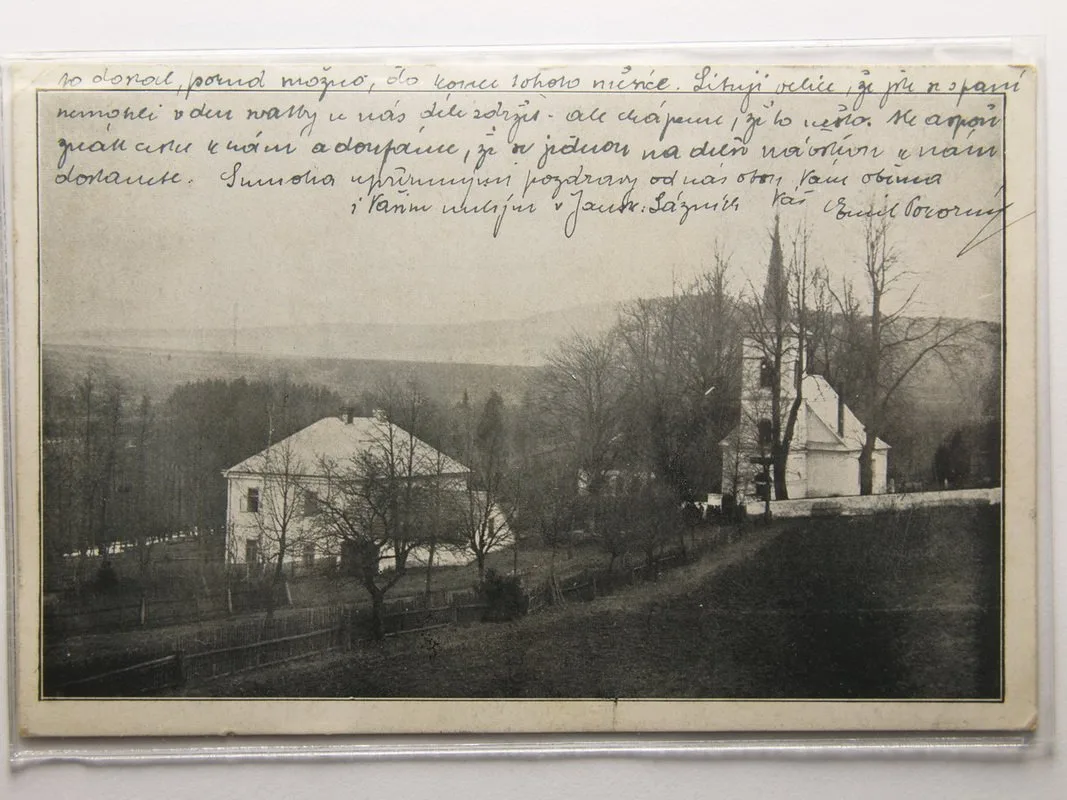 to dostal, pokud možno, do konce tohoto měsíce. Lituji velice, že jste
nemohli v den svatby u nás déle zdržet - ale chápeme, že to nešlo.
k nám a doufáme, že se jednou na delší návštěvu k nám
dostanete. S mnoha upřímnými pozdravy od nás obou Vám oběma
i Vašim milým v Jansk. Lázních Váš Emil Pokorný